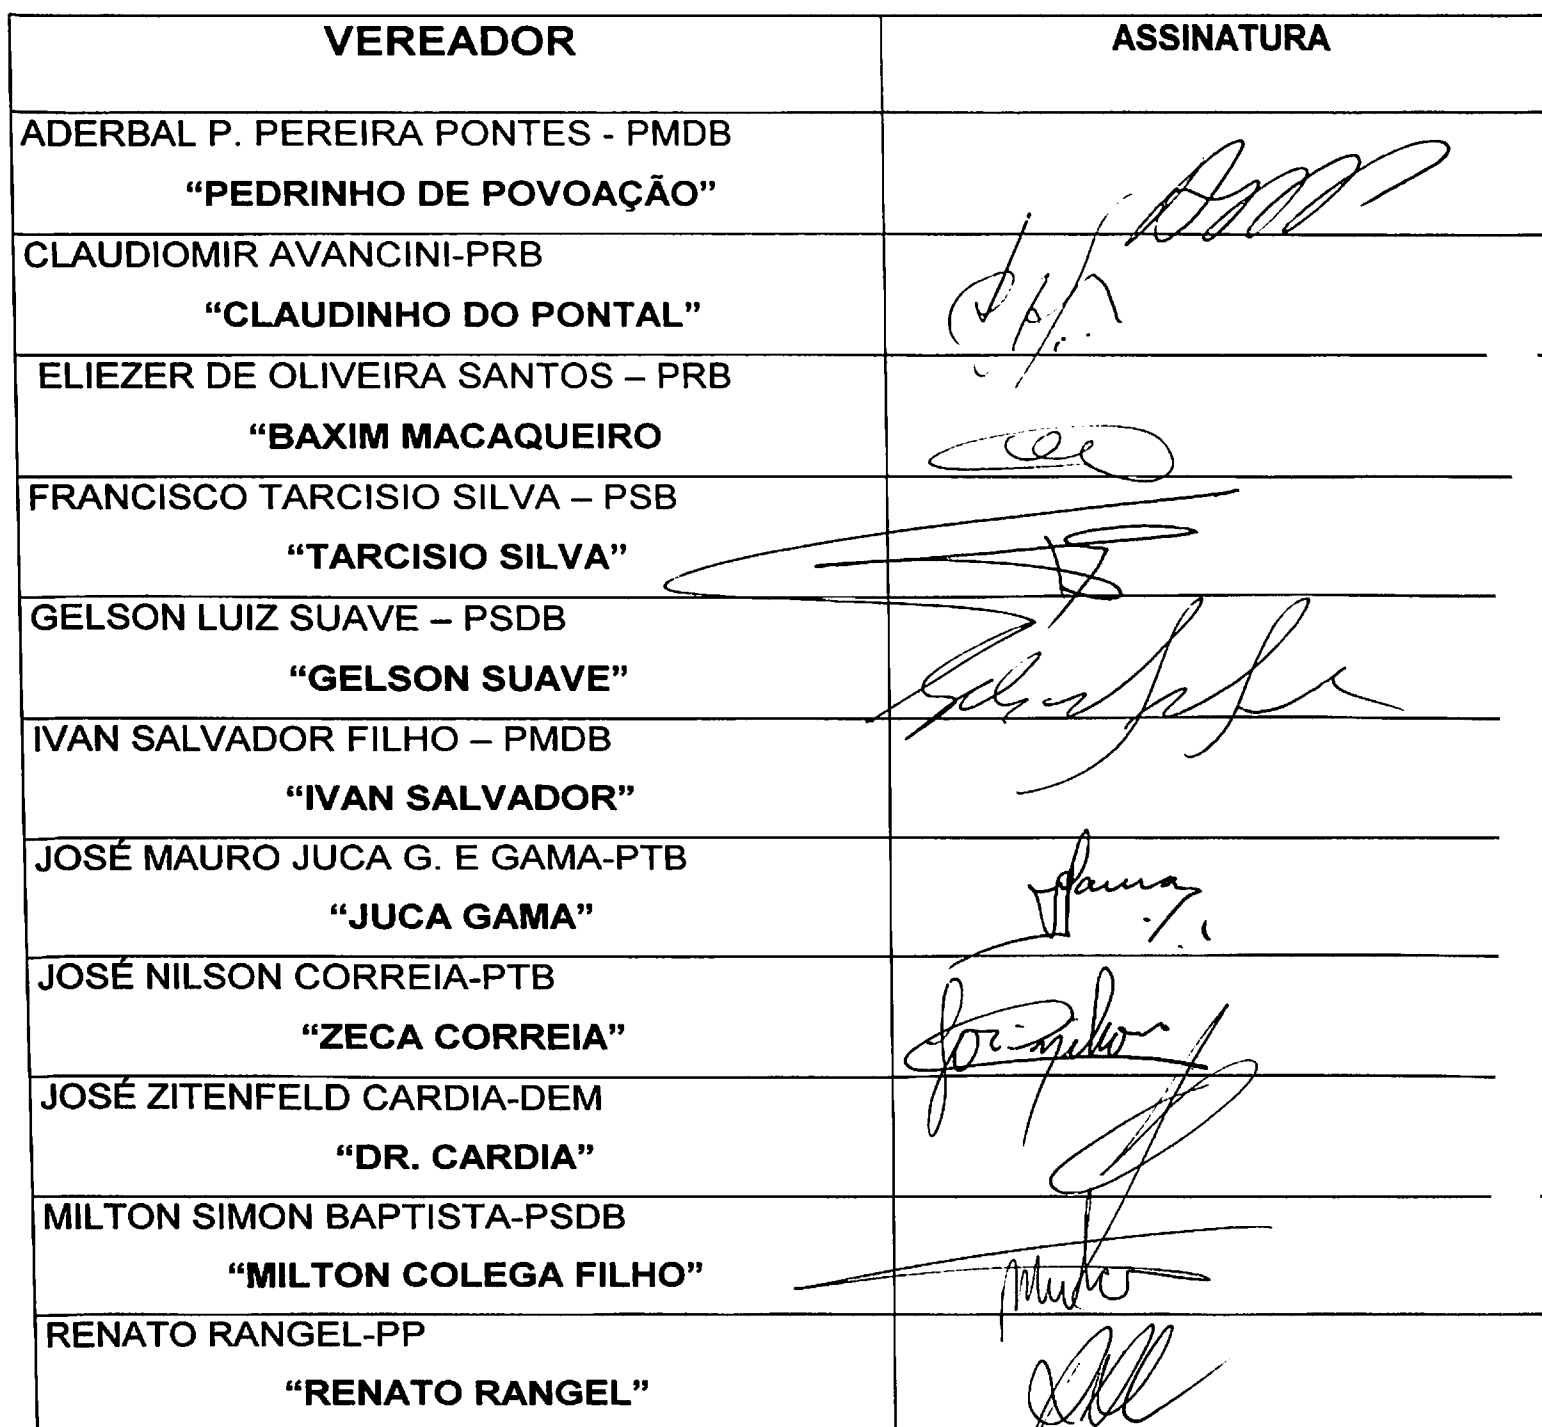 VEREADOR ASSINATURA
ADERBAL P. PEREIRA PONTES - PMDB
“PEDRINHO DE POVOAÇÃO”
CLAUDIOMIR AVANCINI-PRB
“CLAUDINHO DO PONTAL”
ELIEZER DE OLIVEIRA SANTOS – PRB
“BAXIM MACAQUEIRO
FRANCISCO TARCISIO SILVA – PSB
“TARCISIO SILVA”
GELSON LUIZ SUAVE – PSDB
“GELSON SUAVE”
IVAN SALVADOR FILHO – PMDB
“IVAN SALVADOR”
JOSÉ MAURO JUCA G. E GAMA-PTB
“JUCA GAMA”
JOSÉ NILSON CORREIA-PTB
“ZECA CORREIA”
JOSÉ ZITENFELD CARDIA-DEM
“DR. CARDIA”
MILTON SIMON BAPTISTA-PSDB
“MILTON COLEGA FILHO”
RENATO RANGEL-PP
“RENATO RANGEL”